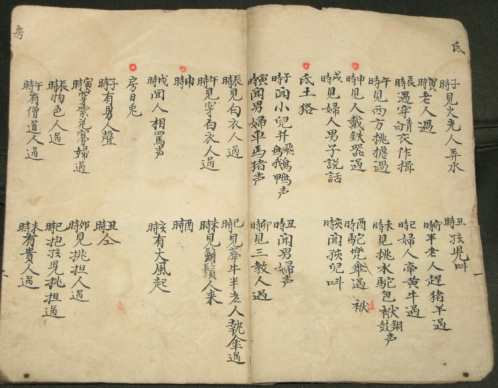 氐
子時見老人弄水 丑時孩児叫
寅時老人過 卯時羊老人趕猪羊過
辰時過穿青衣作揖 巳時婦人帝黃牛過
午時見西方挑担過 未時見挑水駝包袱声
申時見人戴鉄器過 酉時駝傘過
戌時見婦人男子説話 亥時聞孩兒叫
氐土狢
子時聞小児并鵝鴨声 丑時聞男婦声
寅時聞男婦車馬猪声 卯時見三教人過
辰時見白衣人過 巳時見牽牛羊老人執傘過
午時見穿白衣人過 未時見鬍鬚人来
申時 酉時
戌時聞人相罵声 亥時有大風起
房日兎
子時有男人聲 丑時仝
寅時穿寡婦過 卯時見挑担人過
辰時物色人過 巳時抱孩児挑担過
午時有僧道人過 未時有貴人過
房